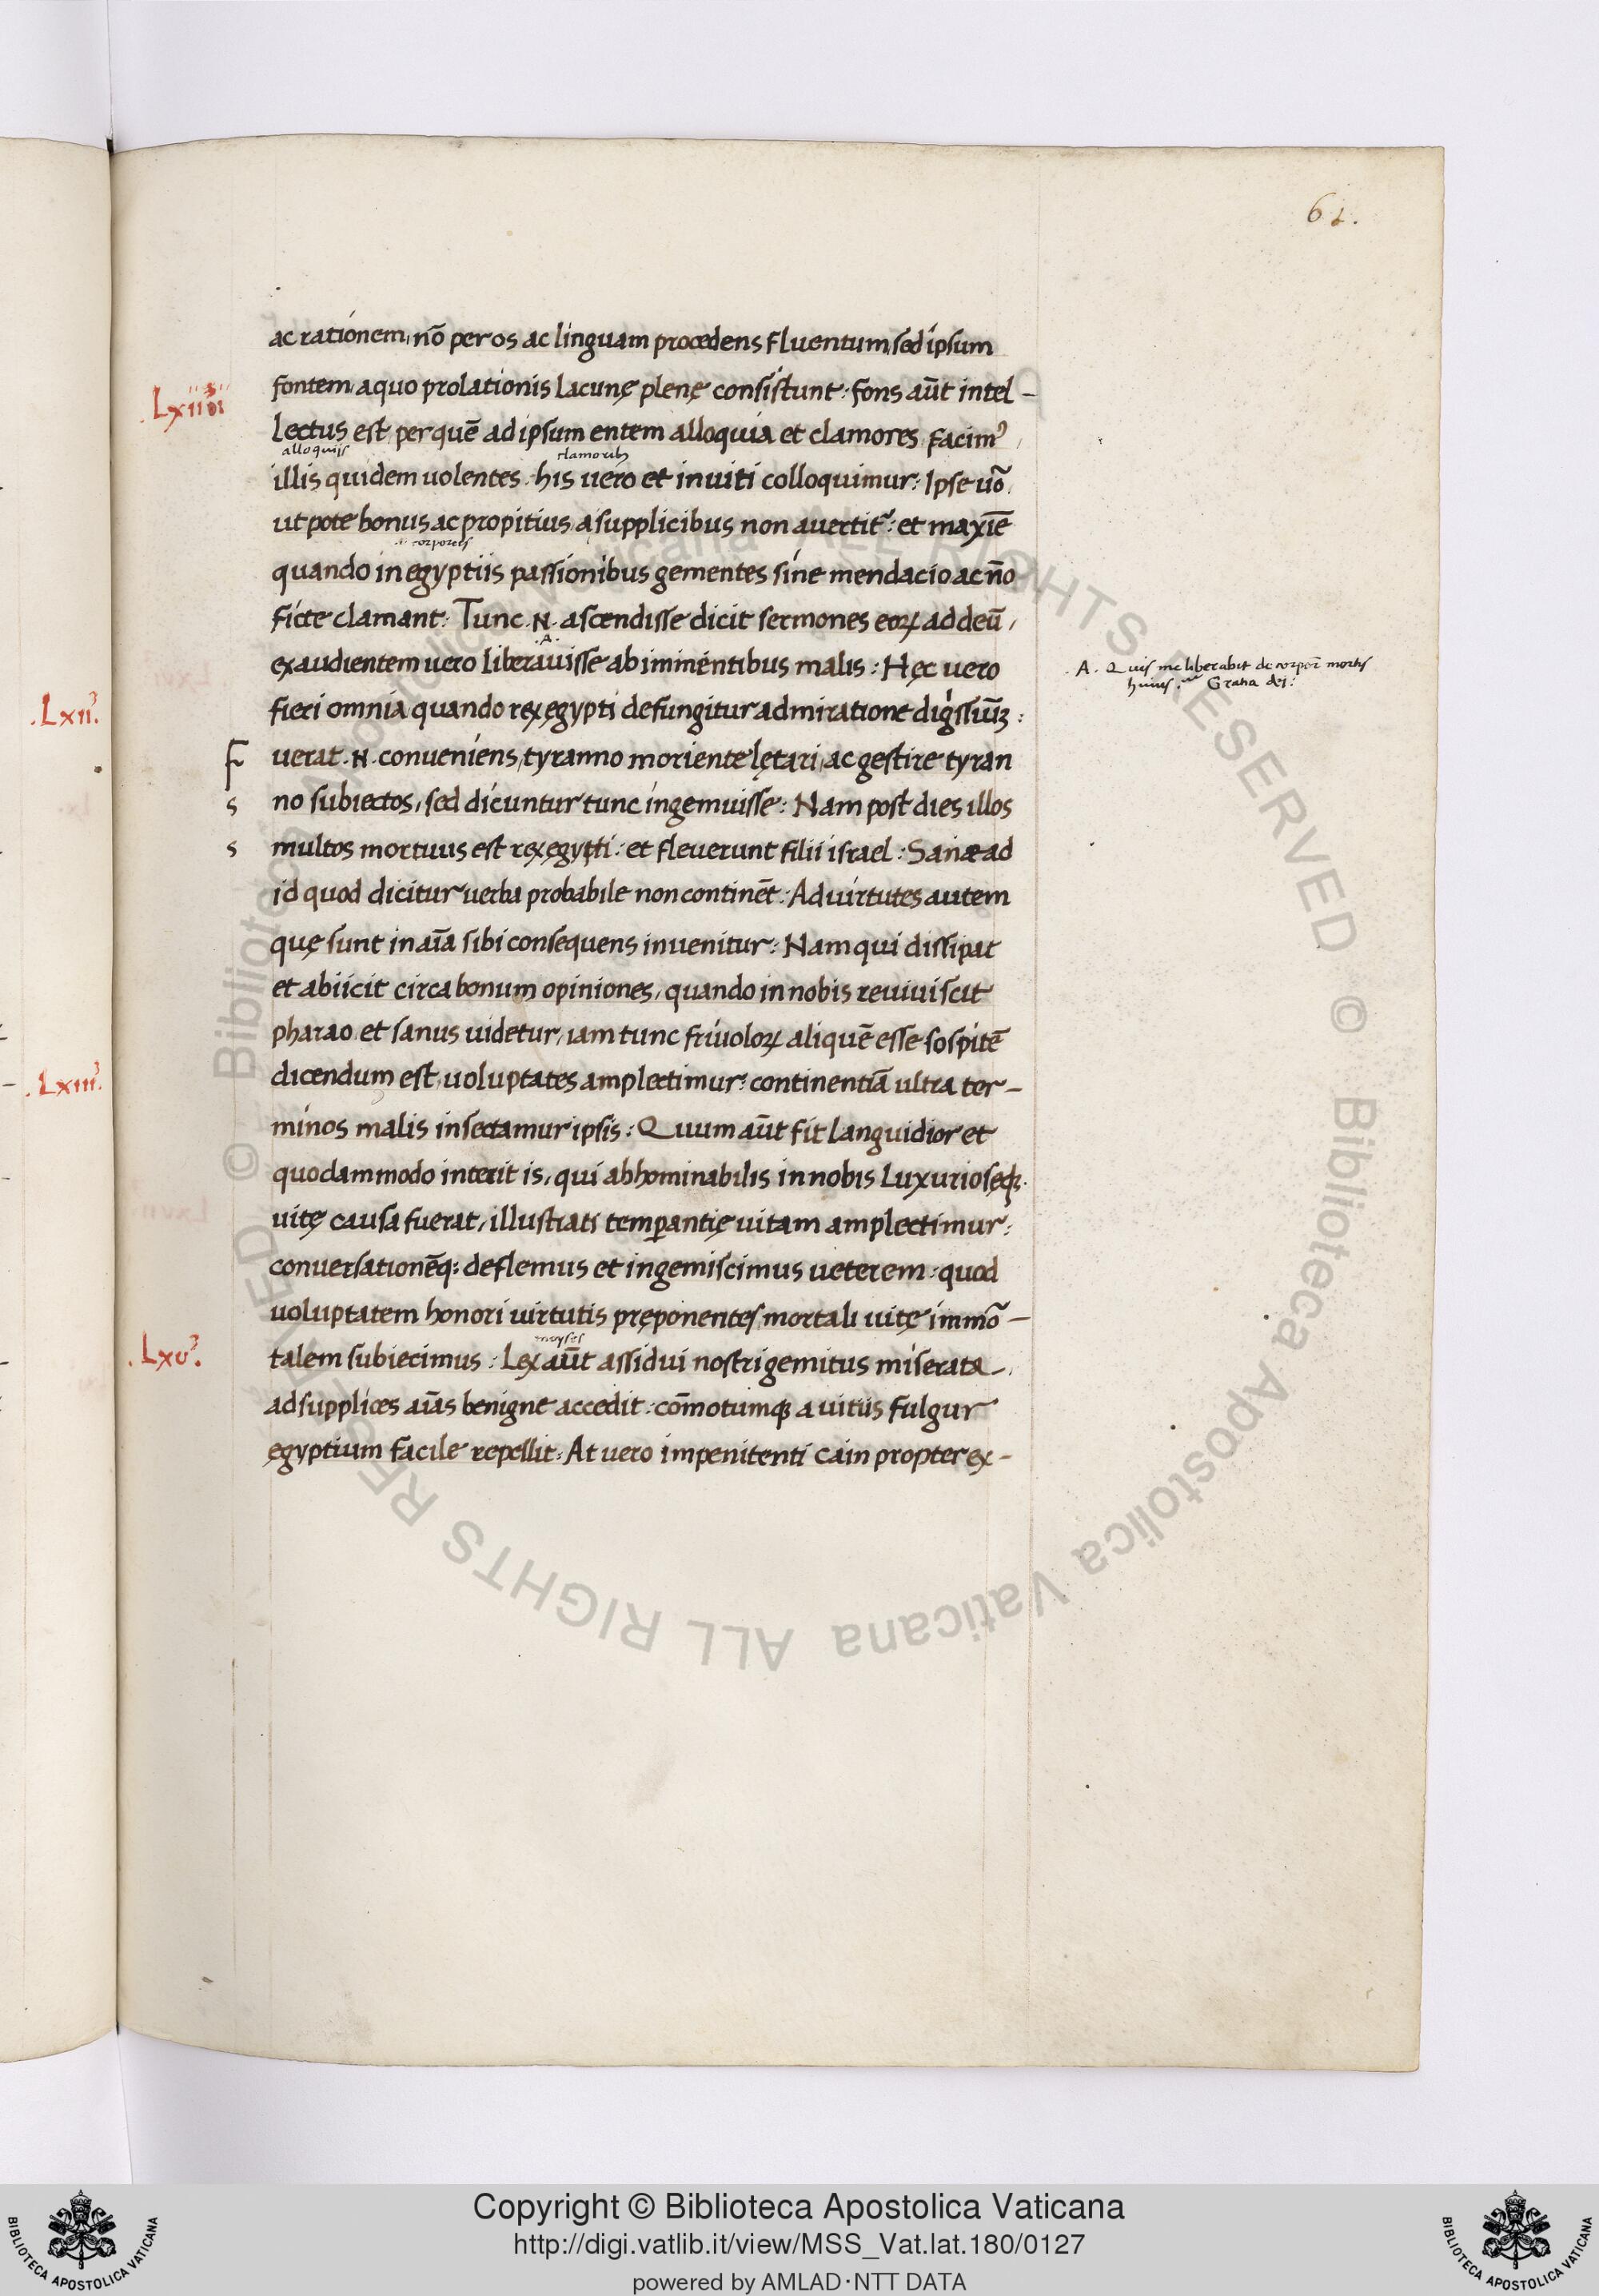 61.
ac rationem, nō per os ac linguam procedens fluentum, sed ipsum
fontem a quo prolationis lacunę plenę consistunt: fons aūt intel-
Lxiiii
lectus est, per quē ad ipsum entem alloquia et clamores facimꝰ,
alloquijs clamorib
illis quidem uolentes: his uero et inuiti colloquimur: Ipse uō
utpote bonus ac propitius, a supplicibus non auertit᷑: et maxīe
corporeis
quando in egyptiis passionibus gementes sine mendacio ac nō
ficte clamant: Tunc .N. ascendisse dicit sermones eoꝝ ad deū,
.A.
exaudientem uero liberauisse ab iminentibus malis: Hęc uero
.A. Quis me liberabit de corpor̄ mortis
huius. Gratia dei:
fieri omnia quando rex ęgypti defungitur admiratione digissiūꝫ:
.Lxii.
F uerat .N. conueniens, tyranno moriente lętari, ac gestire tyran
s no subiectos, sed dicuntur tunc ingemuisse: Nam post dies illos
s multos mortuus est rex ęgypti: et fleuerunt filii israel: Sanæ ad
id quod dicitur uerba probabile non continēt: Ad uirtutes autem
quę sunt in aīa sibi consequens inuenitur: Nam qui dissipat
et abiicit circa bonum opiniones, quando in nobis reuiuiscit
pharao et sanus uidetur, iam tunc friuoloꝝ aliquē esse sospitē
dicendum est, uoluptates amplectimur: continentiā ultra ter-
.Lxiii.
minos malis insectamur ipsis: Quum aūt fit languidior et
quodammodo interit is, qui abhominabilis in nobis luxuriosęqꝫ
uitę causa fuerat, illustrati temꝑantię uitam amplectimur:
conuersationēqꝫ deflemus et ingemiscimus ueterem: quod
uoluptatem honori uirtutis pręponentes, mortali uitę immō-
moyses
talem subiecimus: Lex aūt assidui nostri gemitus miserata,
.Lxv.
ad supplices aīas benigne accedit: cōmotumqꝫ a uitiis fulgur
ęgyptium facile repellit: At uero impenitenti Cain propter ex-
Copyright © Biblioteca Apostolica Vaticana
http://digi.vatlib.it/view/MSS_Vat.lat.180/0127
powered by AMLAD·NTT DATA
BIBLIOTECA APOSTOLICA VATICANA
BIBLIOTECA APOSTOLICA VATICANA
© Biblioteca Apostolica Vaticana ALL RIGHTS RESERVED © Biblioteca Apostolica Vaticana ALL RIGHTS RESERVED